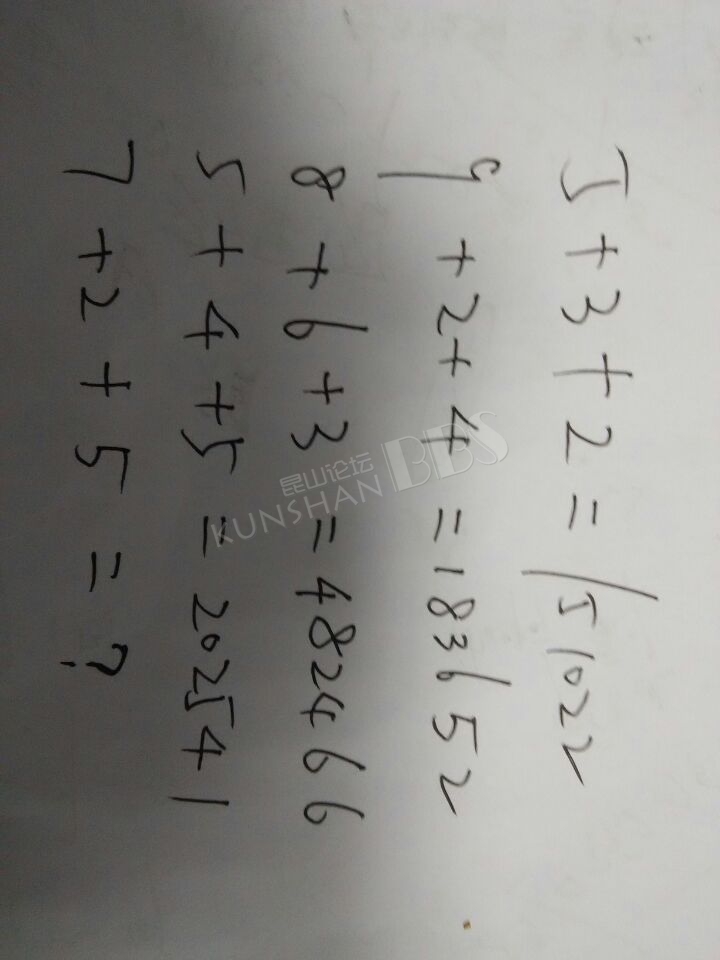 5+3+2=151022
9+2+4=183652
8+6+3=482466
5+4+5=202541
7+2+5=?
昆山论坛
KUNSHAN BBS